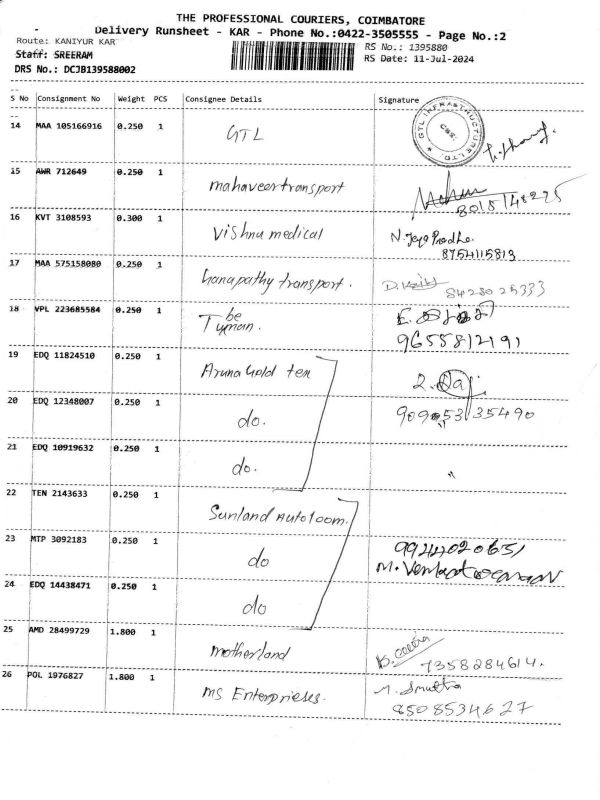 THE PROFESSIONAL COURIERS, COIMBATORE
Delivery Runsheet - KAR - Phone No.:0422-3505555 - Page No.:2
Route: KANIYUR KAR
RS No.: 1395880
Staff: SREERAM
RS Date: 11-Jul-2024
DRS No.: DCJB139588002
S No Consignment No Weight PCS Consignee Details Signature
14 MAA 105166916 0.250 1 GTL
GTL INFRASTRUCTURE LTD.
CBE.
15 AWR 712649 0.250 1 mahaveer transport
8015148225
16 KVT 3108593 0.300 1 Vishnu medical N. Jeya Pradha.
8754115813
17 MAA 575158080 0.250 1 Ganapathy transport.
8428025333
18 VPL 223685584 0.250 1 Tube man.
9655812191
19 EDQ 11824510 0.250 1 Aruna Gold tex R. Raj
20 EDQ 12348007 0.250 1 do.
21 EDQ 10919632 0.250 1 do. "
22 TEN 2143633 0.250 1 Sunland Autoloom.
23 MTP 3092183 0.250 1 do 9944020651
24 EDQ 14438471 0.250 1 do
25 AMD 28499729 1.800 1 motherland
7358284614.
26 POL 1976827 1.800 1 MS Enterprieses.
8508534627